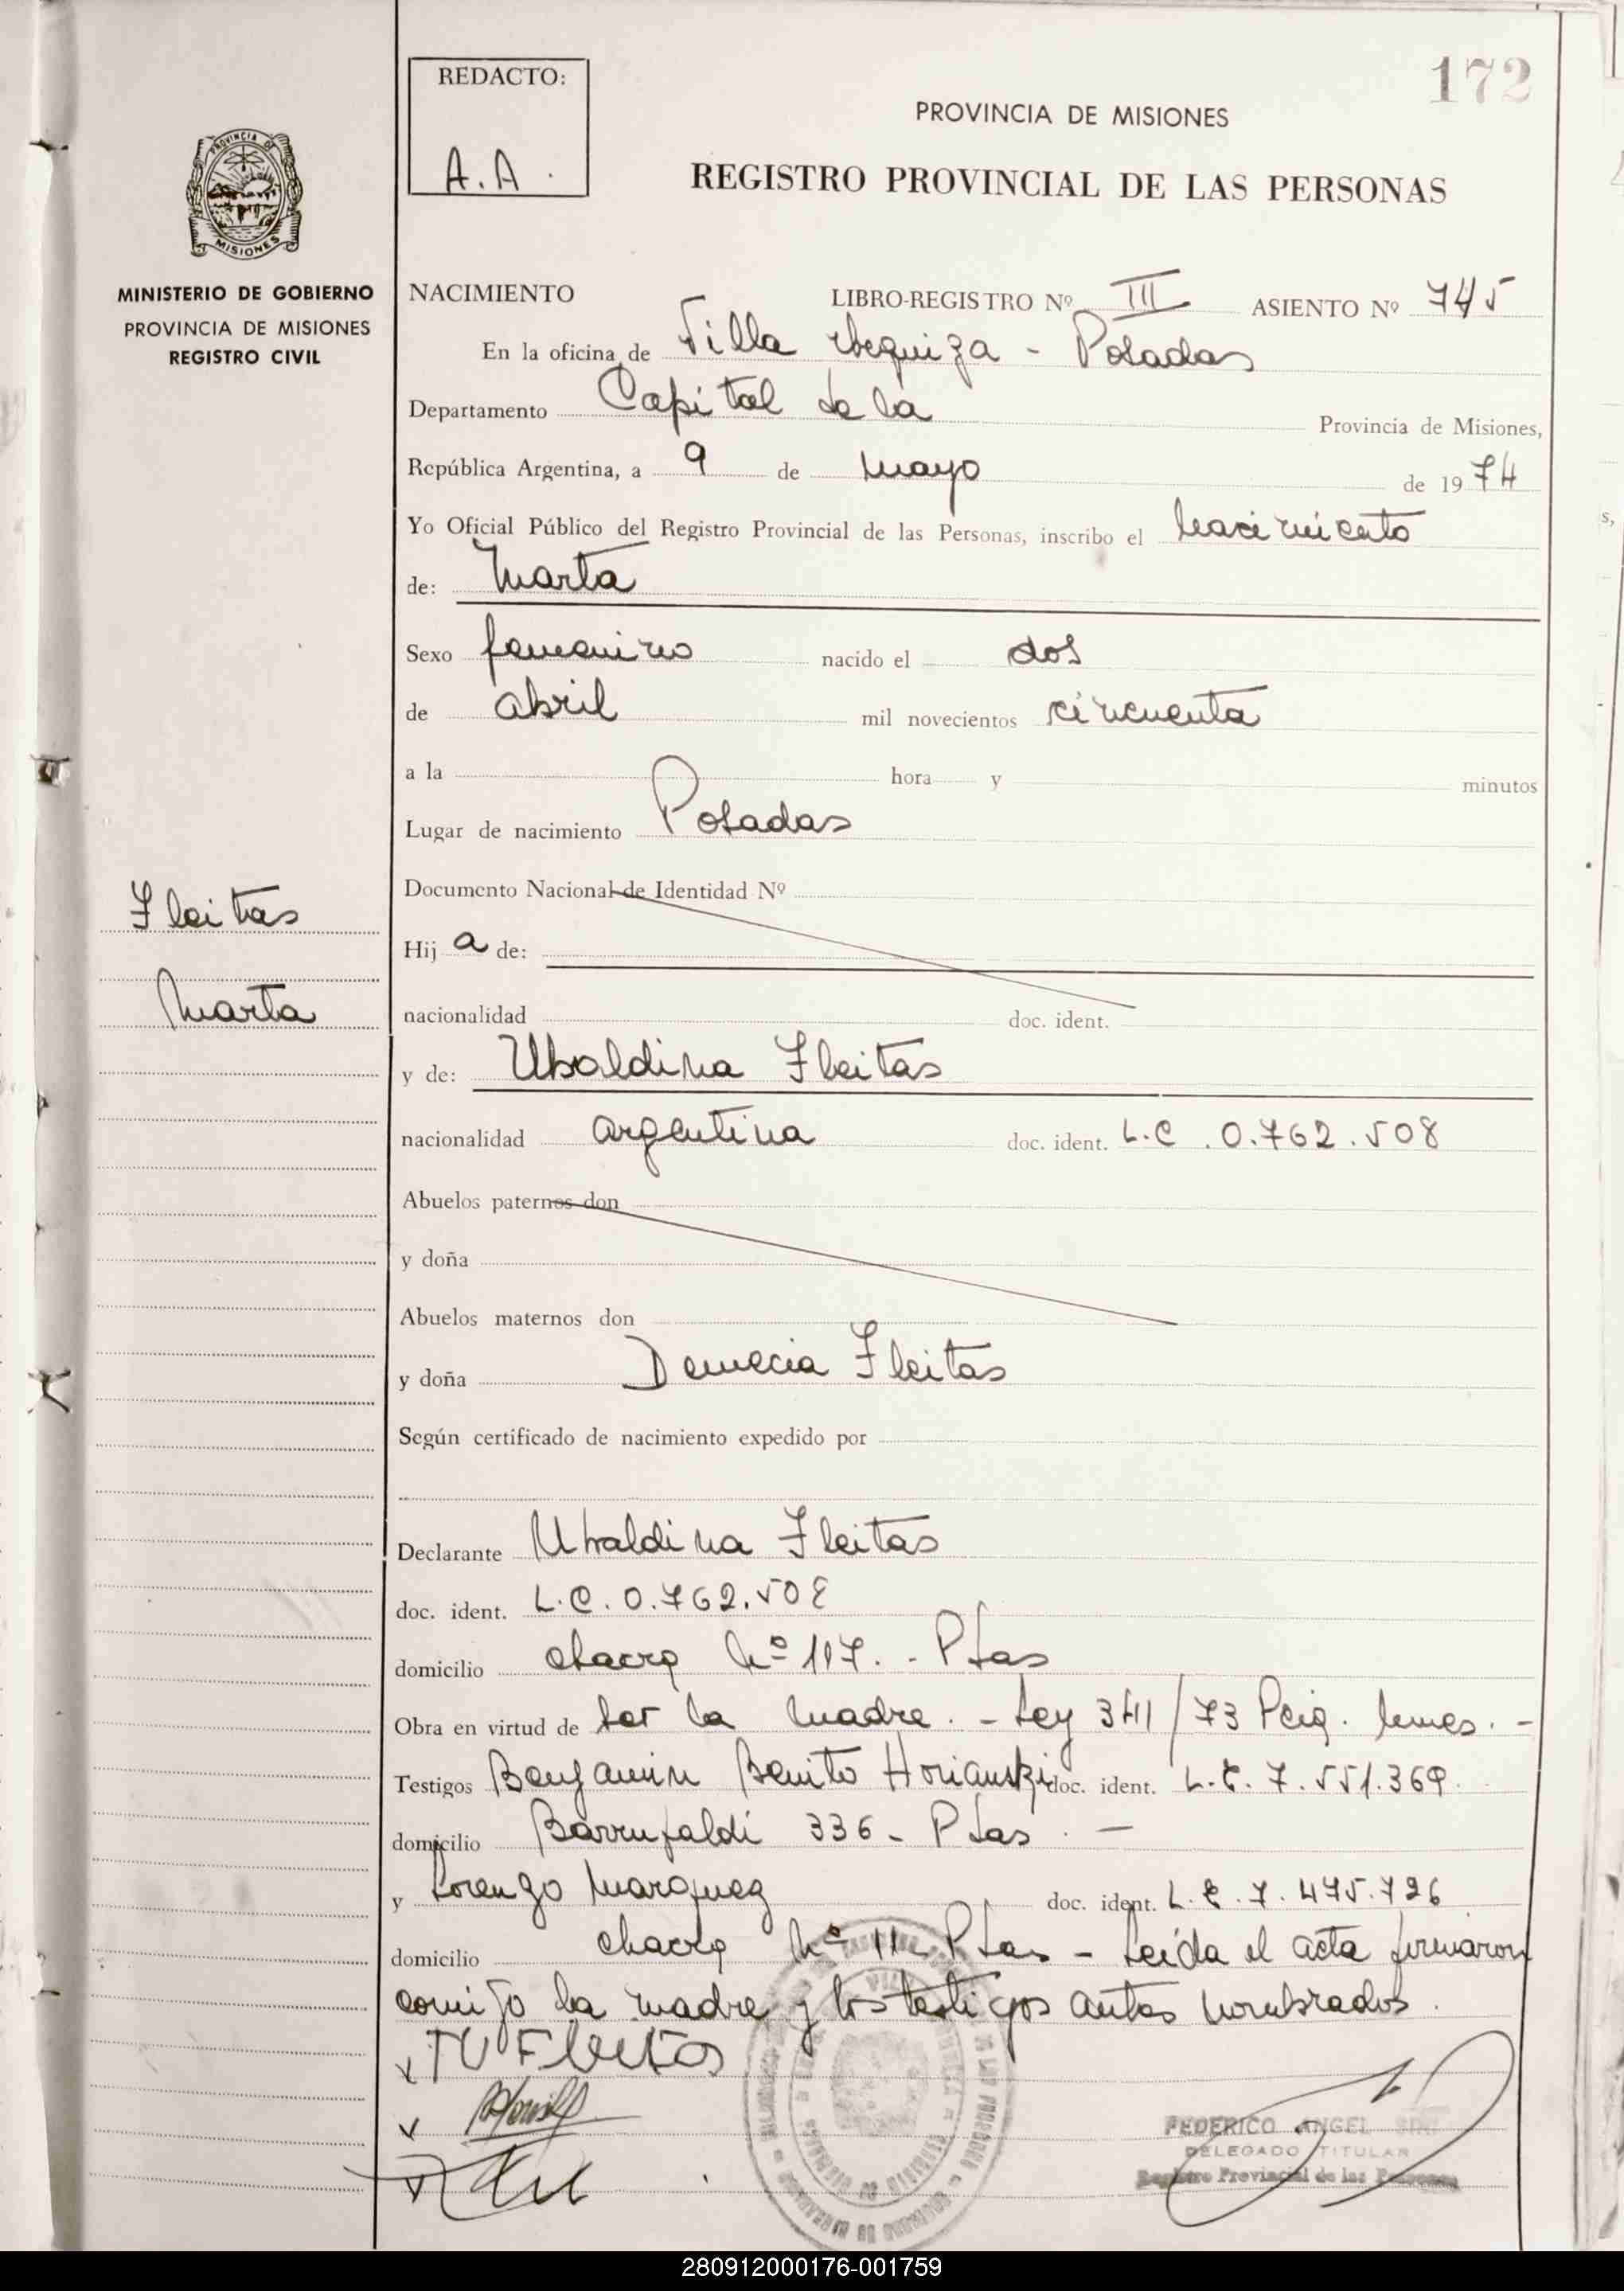 172
REDACTO:
A.A.
PROVINCIA DE MISIONES
REGISTRO PROVINCIAL DE LAS PERSONAS
PROVINCIA DE
MISIONES
MINISTERIO DE GOBIERNO
PROVINCIA DE MISIONES
REGISTRO CIVIL
NACIMIENTO LIBRO-REGISTRO Nº III ASIENTO Nº 745
En la oficina de Villa Urquiza - Posadas
Departamento Capital de la Provincia de Misiones,
República Argentina, a 9 de Mayo de 1974
Yo Oficial Público del Registro Provincial de las Personas, inscribo el nacimiento
de: Marta
Sexo femenino nacido el dos
de abril mil novecientos cincuenta
a la hora y minutos
Lugar de nacimiento Posadas
Documento Nacional de Identidad Nº
Fleitas
Marta
Hija de:
nacionalidad doc. ident.
y de: Ubaldina Fleitas
nacionalidad argentina doc. ident. L.C. 0.762.508
Abuelos paternos don
y doña
Abuelos maternos don
y doña Demecia Fleitas
Según certificado de nacimiento expedido por
Declarante Ubaldina Fleitas
doc. ident. L.C. 0.762.508
domicilio chacra Nº 117. - Pdas
Obra en virtud de ser la madre. - Ley 341/73
Testigos Benjamin Benito Horianski doc. ident. L.E. 7.551.369.
domicilio Barrufaldi 336 - Pdas. -
y Lorenzo Marquez doc. ident. L.E. 7.475.726
domicilio chacra Nº 11 - Pdas - Leida el acta firmaron
comigo la madre y los testigos antes nombrados.
Fleitas
FEDERICO ANGEL
DELEGADO TITULAR
Registro Provincial de las Personas
280912000176-001759